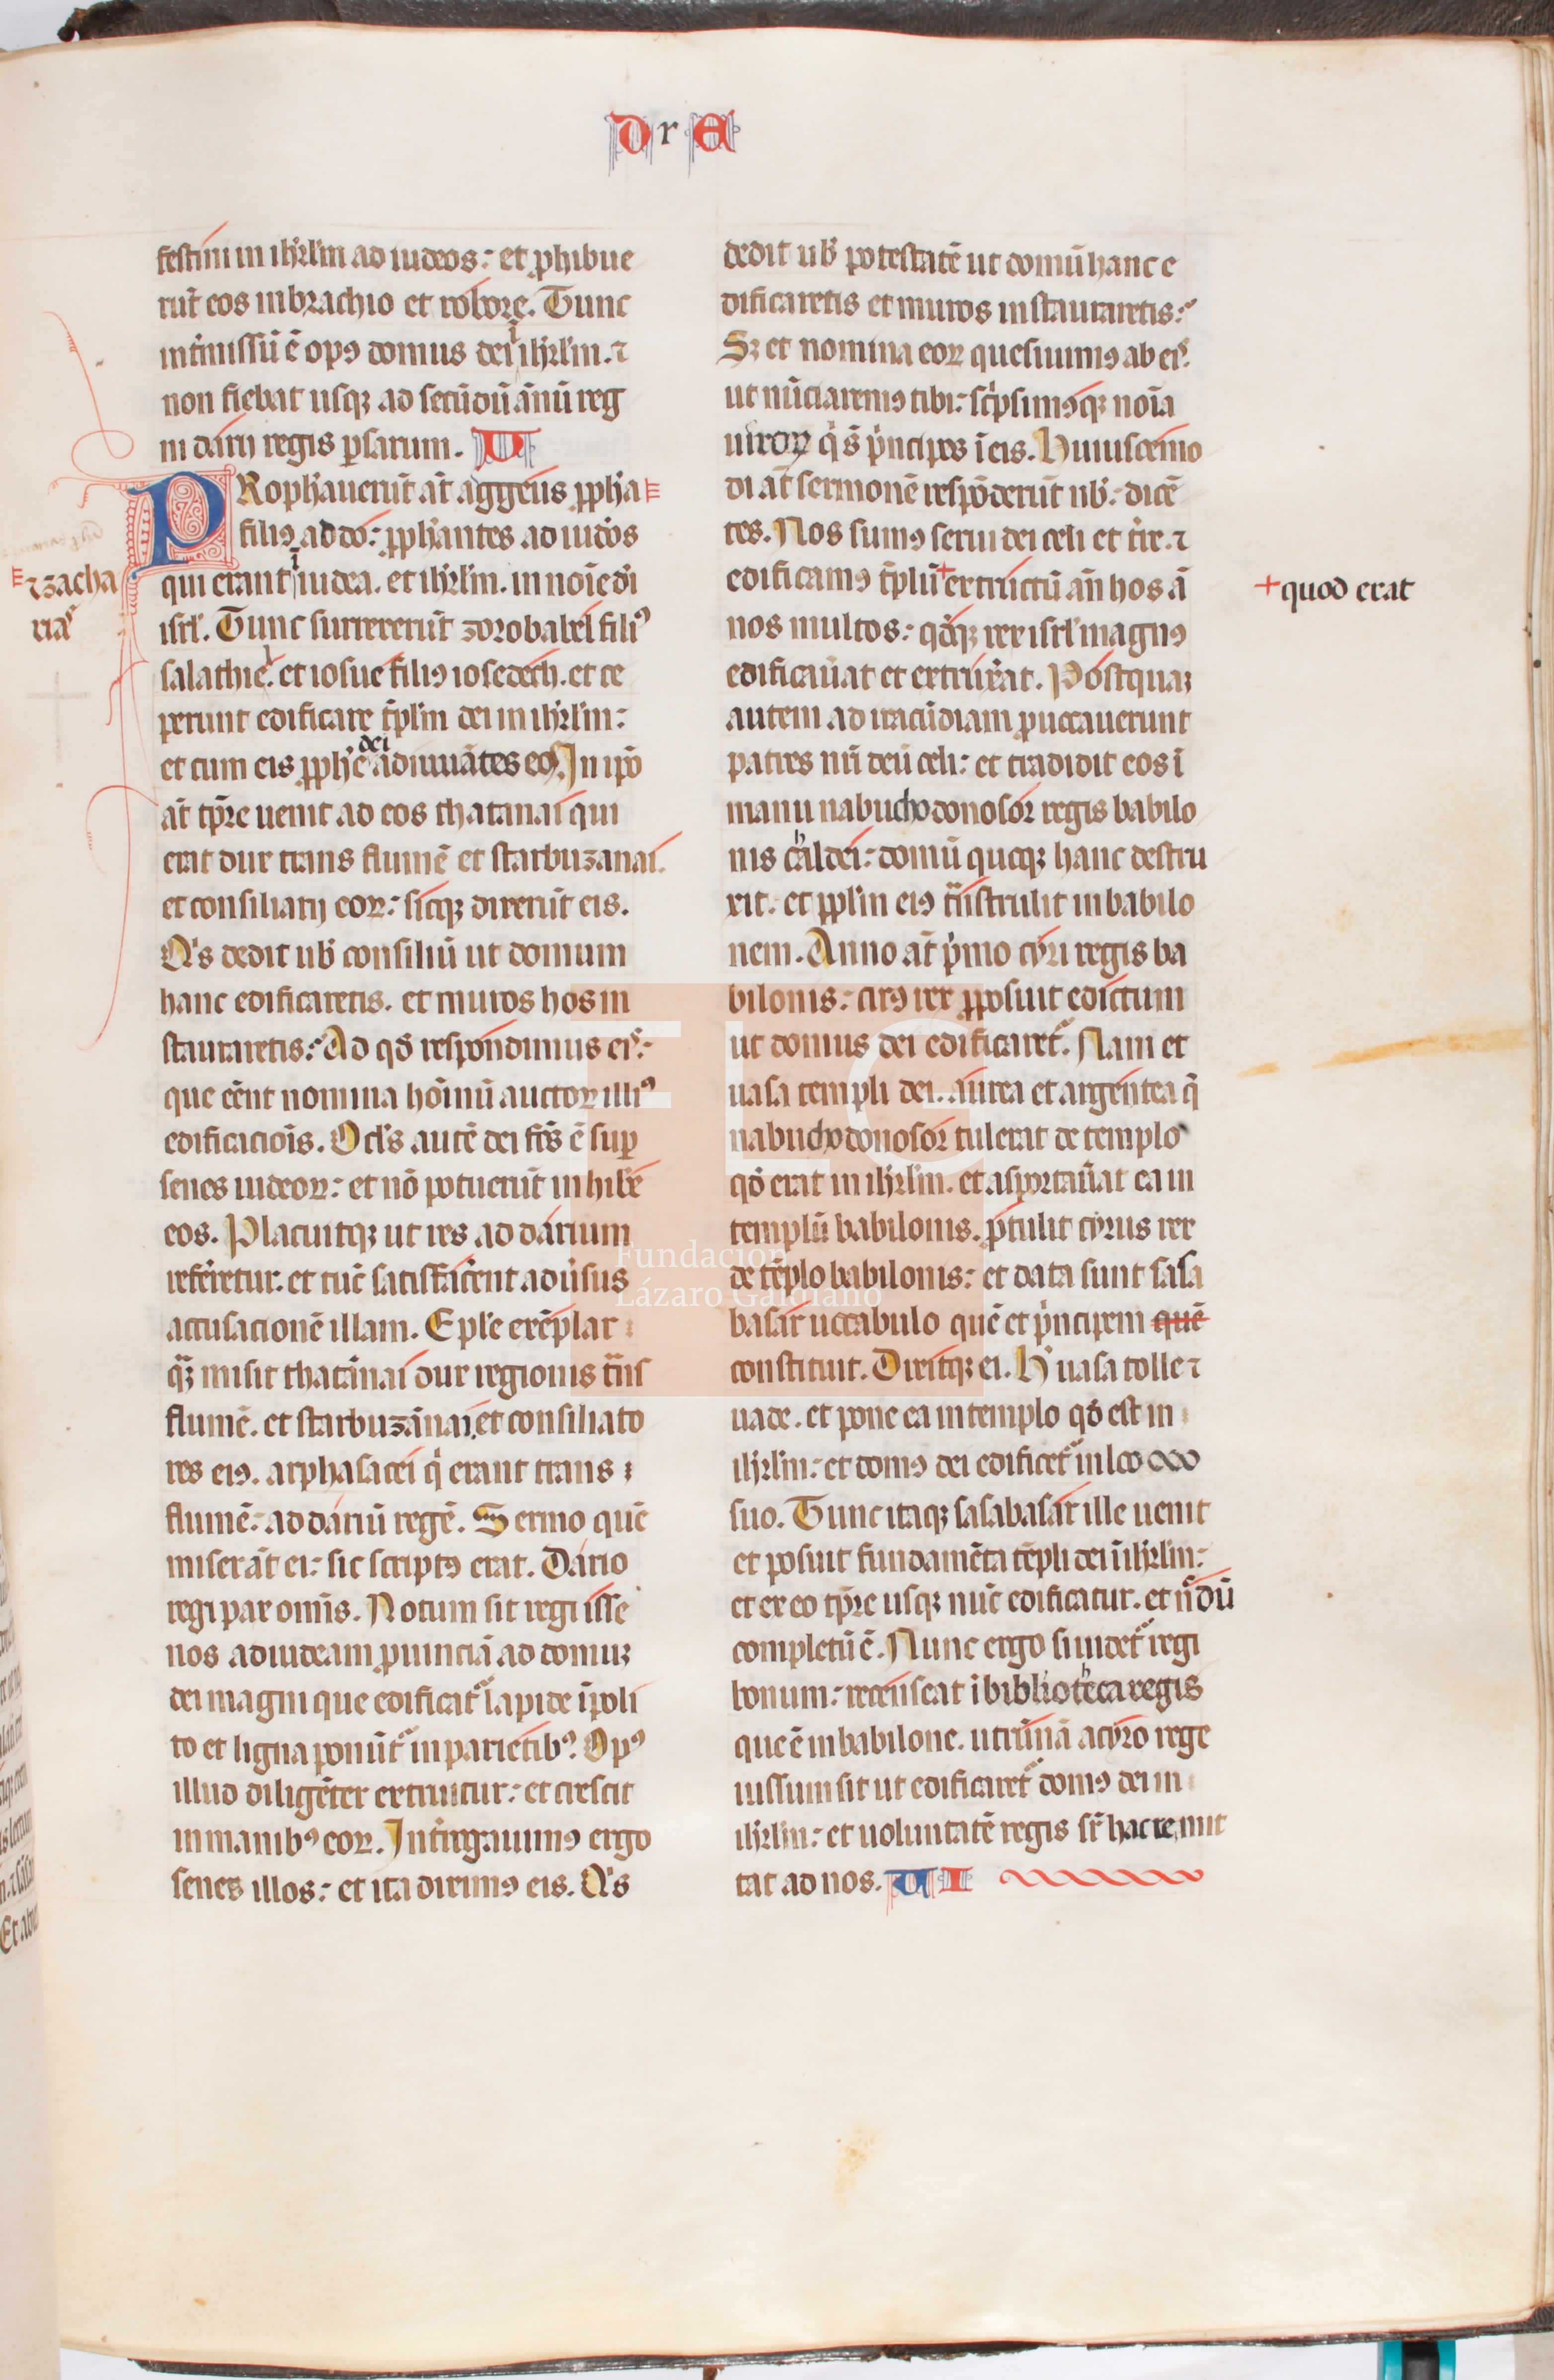 D r A
festini in iħrl̄m ad iudeos: et ꝓhibue
rūt eos in brachio et robore. Tunc
int̄missū ē opꝰ domus dei i iħrl̄m. ⁊
non fiebat usqꝫ ad secūdū ānū reg
ni darij regis ꝑsarum. V
PRophauerūt aūt aggeus ꝓpha
filiꝰ addo: ꝓphantes ad iudos
⁊ zacha
rias
qui erant i iudea. et iħrl̄m. in noīe di
isrl̄. Tunc surrexerūt zorobabel filiꝰ
salathiel. et iosue filiꝰ iosedech. et ce
perunt edificare tp̄lm dei in iħrl̄m:
et cum eis ꝓphe dei adiuuātes eos. In ip̄o
aūt tp̄re uenit ad eos thatanai qui
erat dux trans flumē et starbuzanai.
et consiliarij eoꝝ: sicqꝫ dixerūt eis.
Qͥs dedit uƀ consiliū ut domum
hanc edificaretis. et muros hos in
stauraretis: Ad qđ respondimus eis:
que eēnt nomina hoīnū auctoꝝ illiꝰ
edificacioīs. Ocl̄s autē dei fcs̄ ē suꝑ
senes iudeoꝝ: et nō potuerūt inhibe
eos. Placuitqꝫ ut res ad darium
referretur. et tūc satisfacerent aduersus
accusacionē illam. Epl̄e exēplar
qꝫ misit thatanai dux regionis tͣns
flumē. et starbuzanai, et consiliato
res eiꝰ. arphasacei qͥ erant trans
flumē: ad dariū regē. Sermo quē
miserāt ei: sic scriptꝰ erat. Dario
regi pax omīs. Notum sit regi isse
nos ad iudeam ꝓuinciā ad domuꝫ
dei magni que edificat᷑ lapide īpoli
to et ligna ponūt᷑ in parietibꝰ. Opꝰ
illud diligēter extruitur: et crescit
in manibꝰ eoꝝ. Int̄rogauimꝰ ergo
senes illos: et ita diximꝰ eis. Qͥs
dedit uƀ potestatē ut domū hanc e
dificaretis et muros instauraretis:
Sꝫ et nomina eoꝝ quesiuimꝰ ab eis.
ut nūciaremꝰ tibi: scͥpsimꝰqꝫ noīa
uiroꝝ qͥ s̄ pͥncipes ī eis. Huiuscemo
di aūt sermonē respōderūt nƀ: dicē
tes. Nos sumꝰ serui dei celi et tr̄e. ⁊
edificamꝰ tp̄lū + extructū an̄ hos ā
+ quod erat
nos multos: qđqꝫ rex isrl̄ magnꝰ
edificauāt et extruxāt. Postquaꝫ
autem ad iracūdiam ꝓuocauerunt
patres nr̄i deū celi: et tradidit eos ī
manu nabuchodonosor regis babilo
nis chaldei: domū quoqꝫ hanc destru
xit. et ppl̄m eiꝰ tͣnstulit in babilo
nem. Anno aūt pͥmo cyri regis ba
bilonis: cirꝰ rex ꝓposuit edictum
ut domus dei edificaret᷑. Nam et
uasa templi dei. aurea et argentea q̄
nabuchodonosor tulerat de templo
qđ erat in iħrl̄m. et asportauāt ea in
templū babilonis. ꝓtulit cyrus rex
de tēplo babilonis: et data sunt sasa
basar uocabulo quē et pͥncipem quē
constituit. Dixitqꝫ ei. H̄ uasa tolle ⁊
uade. et pone ea in templo qđ est in
iħrl̄m: et domꝰ dei edificet᷑ in loco
suo. Tunc itaqꝫ sasabasar ille uenit
et posuit fundamēta tēpli dei ī iħrl̄m:
et ex eo tp̄re usqꝫ nūc edificatur. et nͦdū
completū ē. Nunc ergo si uidet᷑ regi
bonum: recenseat ī bibliotheca regis
que ē in babilone. utrūnā a cyro rege
iussum sit ut edificaret᷑ domꝰ dei in
iħrl̄m: et uoluntatē regis sr̄ hac re, mit
tat ad nos. VI
Fundación
Lázaro Galdiano
FLG